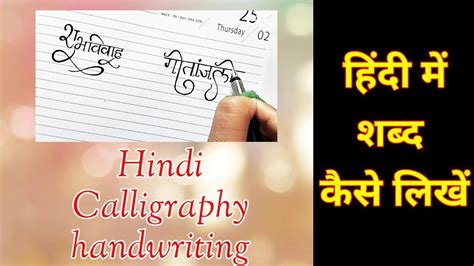 25
Thursday
02
शुभविवाह
गीतांजली
Hindi
Calligraphy
handwriting
हिंदी में
शब्द
कैसे लिखें